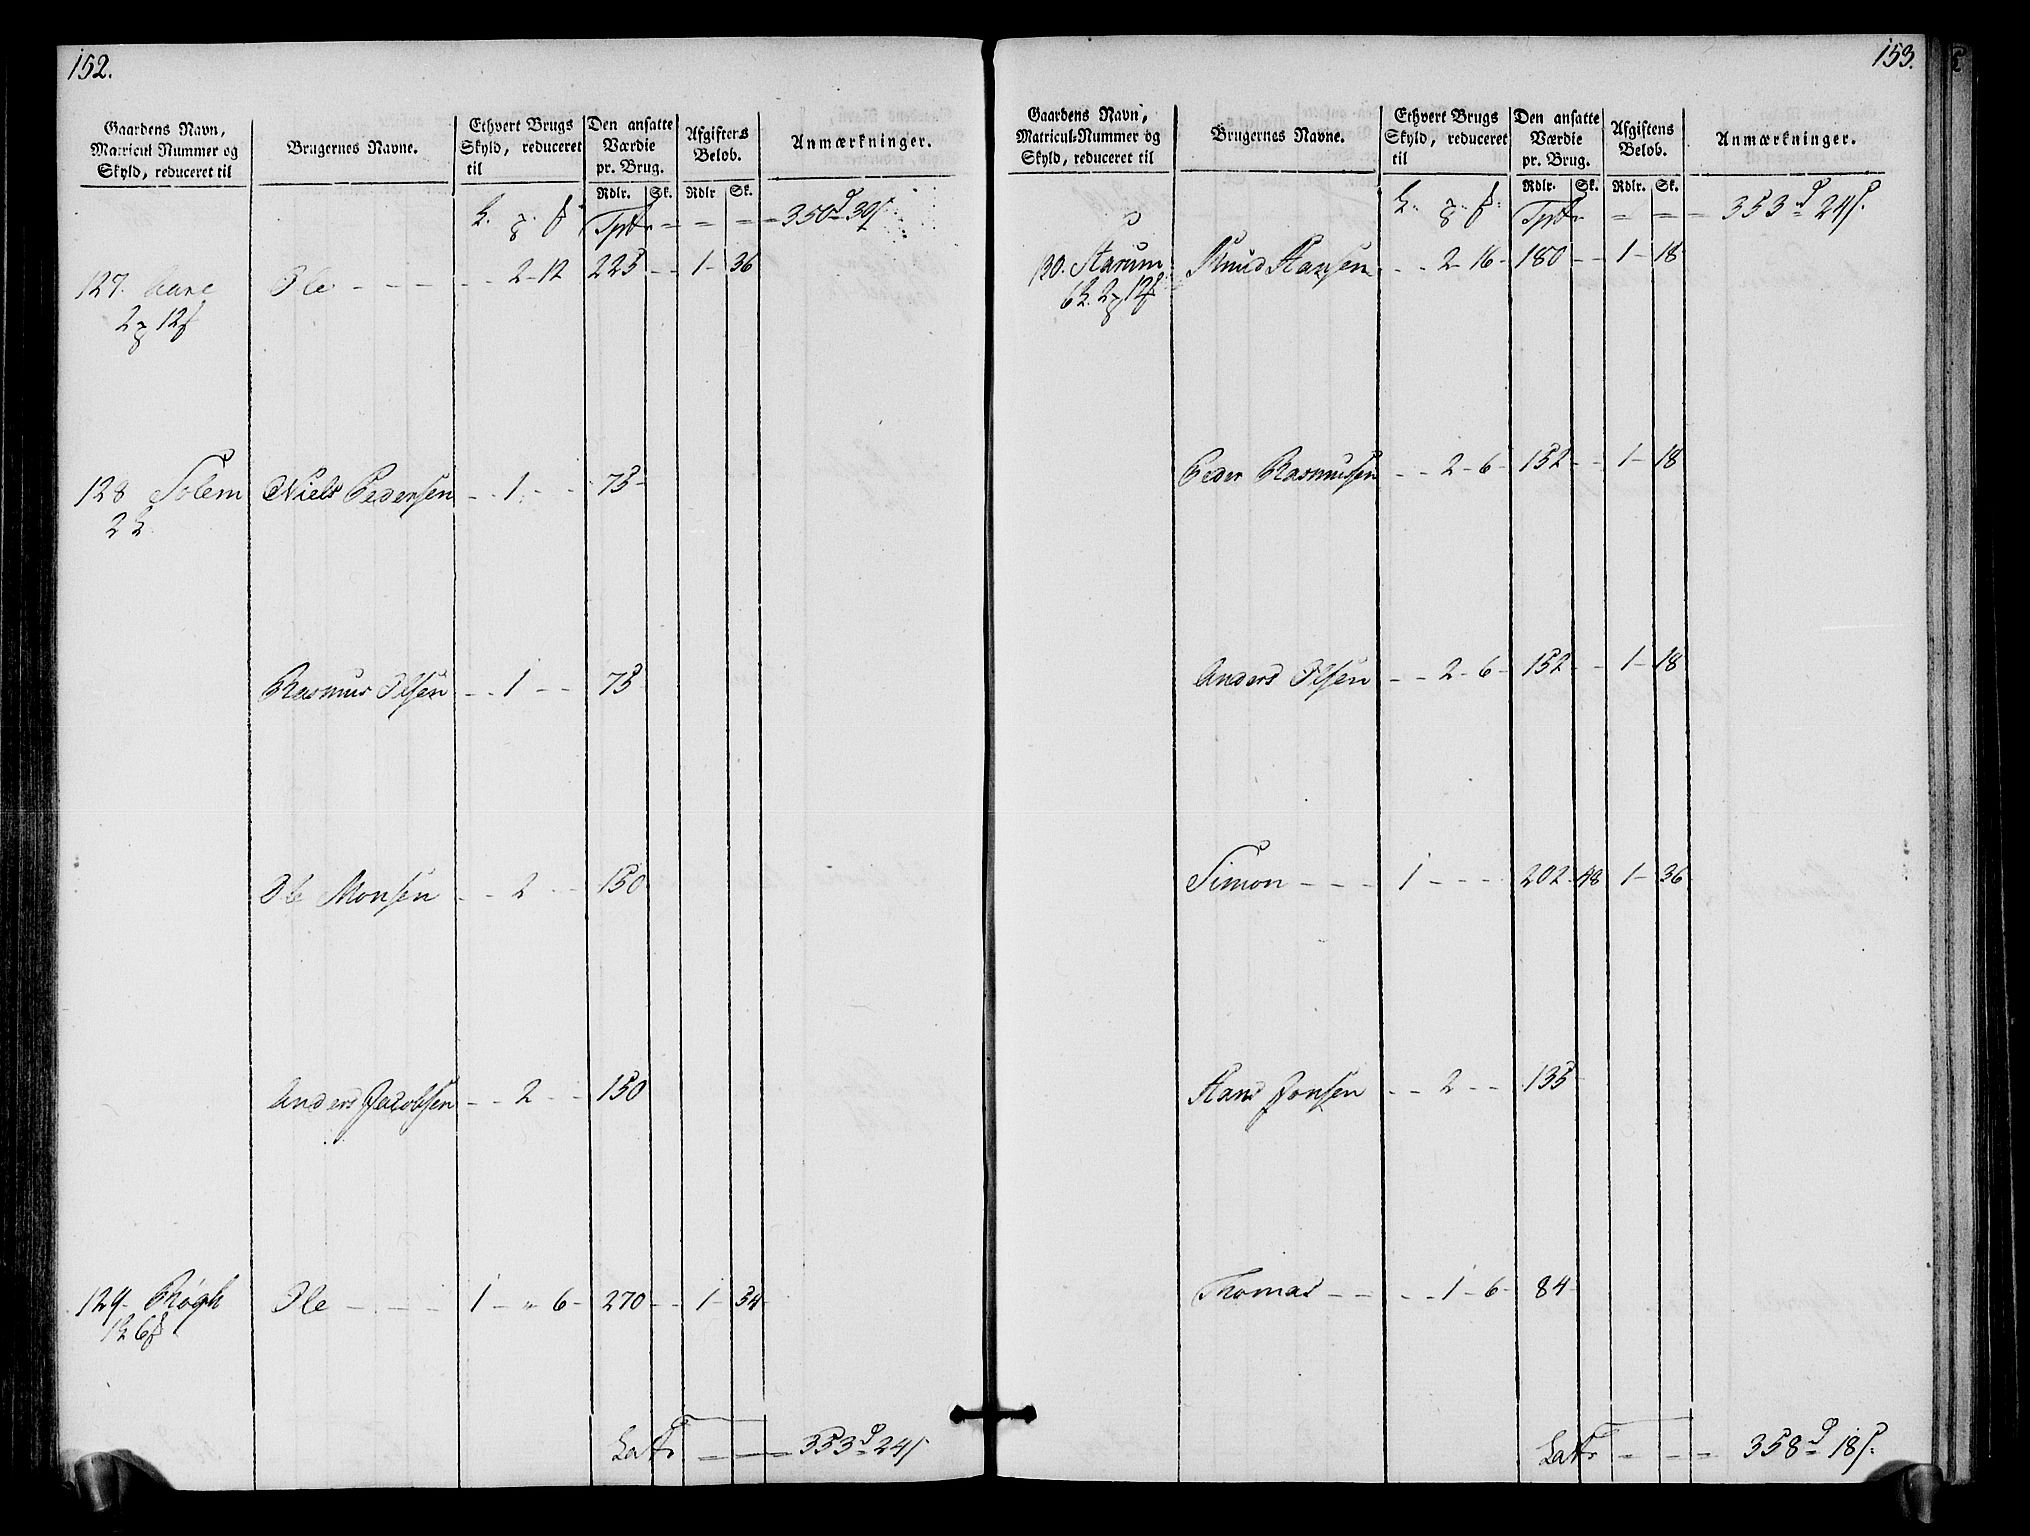 152.
Gaardens Navn, Matricul Nummer og Skyld, reduceret til | Brugernes Navne. | Ethvert Brugs Skyld, reduceret til | Den ansatte Værdie pr. Brug. Rdlr. Sk. | Afgiftens Beløb. Rdlr Sk. | Anmærkninger.
Tpt = = = 350 d 30 s
127. Aare Ole - - - 2 - 12 225 - - 1 - 36
128 Solem Niels Pedersen - - 1 - - 75 -
Rasmus Olsen - - 1 - - 75
Ole Monsen - - 2 - - 150
Anders Jacobsen - - 2 - - 150
129 - Røgh Ole - - - 1 - " 6 - 270 - - 1 - 54
Latr - - 353 d 24 s
153.
Gaardens Navn, Matricul-Nummer og Skyld, reduceret til | Brugernes Navne. | Ethvert Brugs Skyld, reduceret til | Den ansatte Værdie pr. Brug. Rdlr. Sk. | Afgiftens Beløb. Rdlr. Sk. | Anmærkninger.
Tpt = = = 353 d 24 s.
130. Harum Knud Hansen - - 2 - 16 - 180 - - 1 - 18
Peder Rasmussen - - 2 - 6 - 152 - - 1 - 18
Anders Olsen - - 2 - 6 - 152 - - 1 - 18
Simon - - - 1 - - - 202 - 48 1 - 36
Hans Jonsen - - 2 - - 135
Thomas - - - - 1 - 6 - 84 -
Latr - - 358 d 18 s.